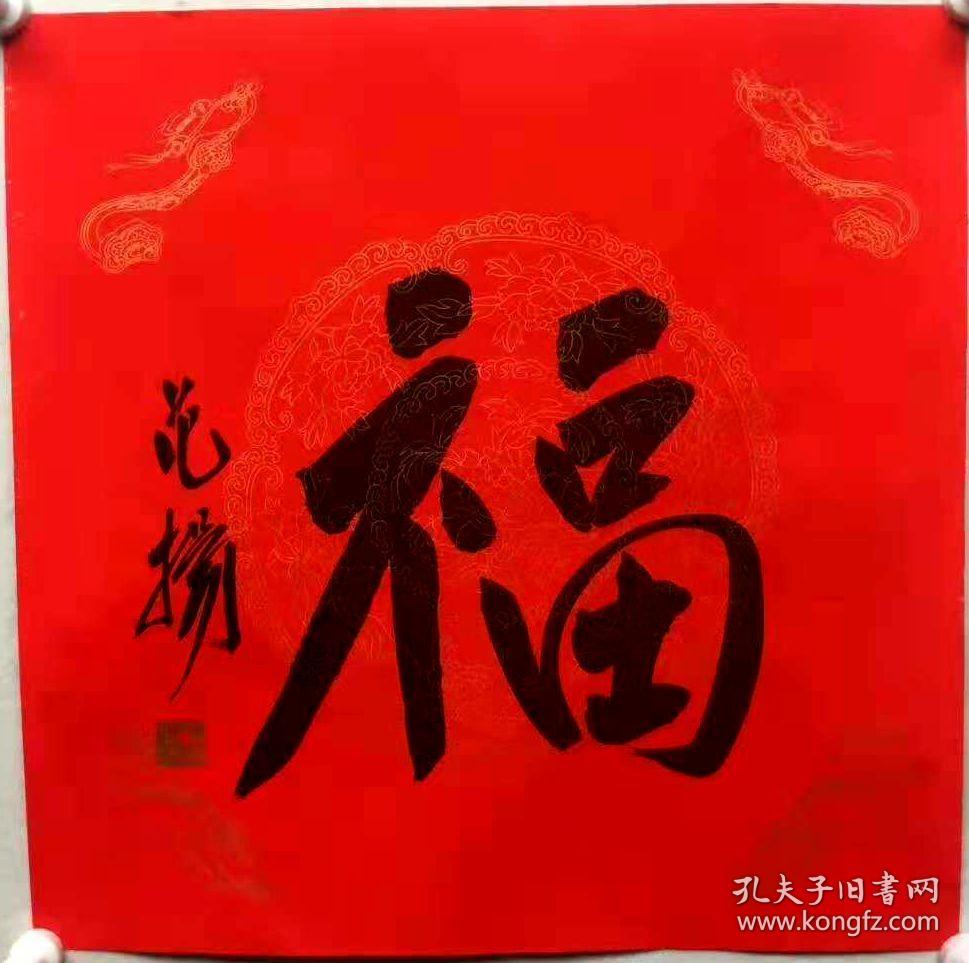 福
范扬
孔夫子旧書网
www.kongfz.com